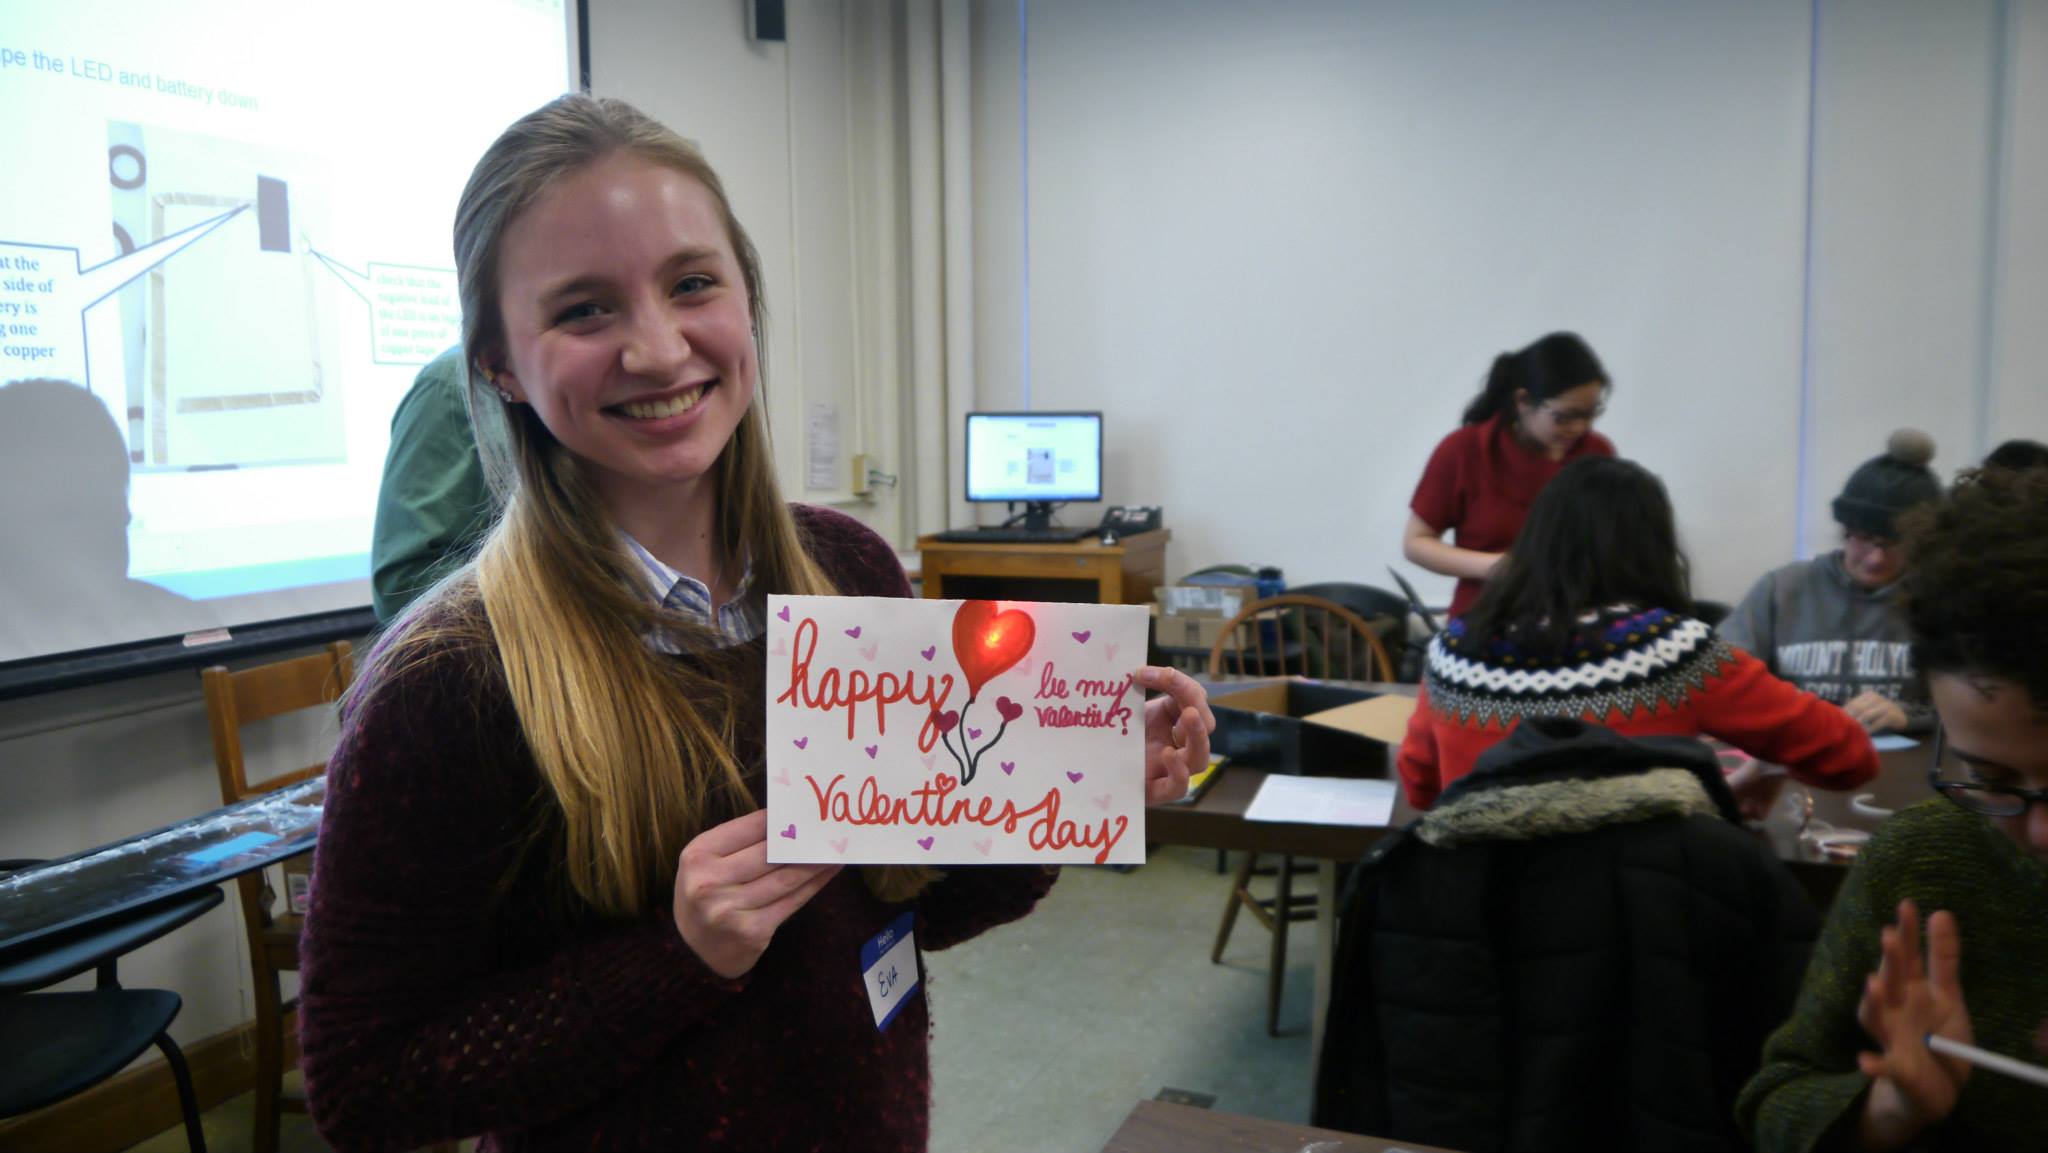 pe the LED and battery down
at the
side of
ery is
g one
copper
check that the
negative lead of
the LED is on top
of one piece of
copper tape
happy
be my
valentine?
valentines day
Hello
EVA
MOUNT HOLYO
COLLEGE